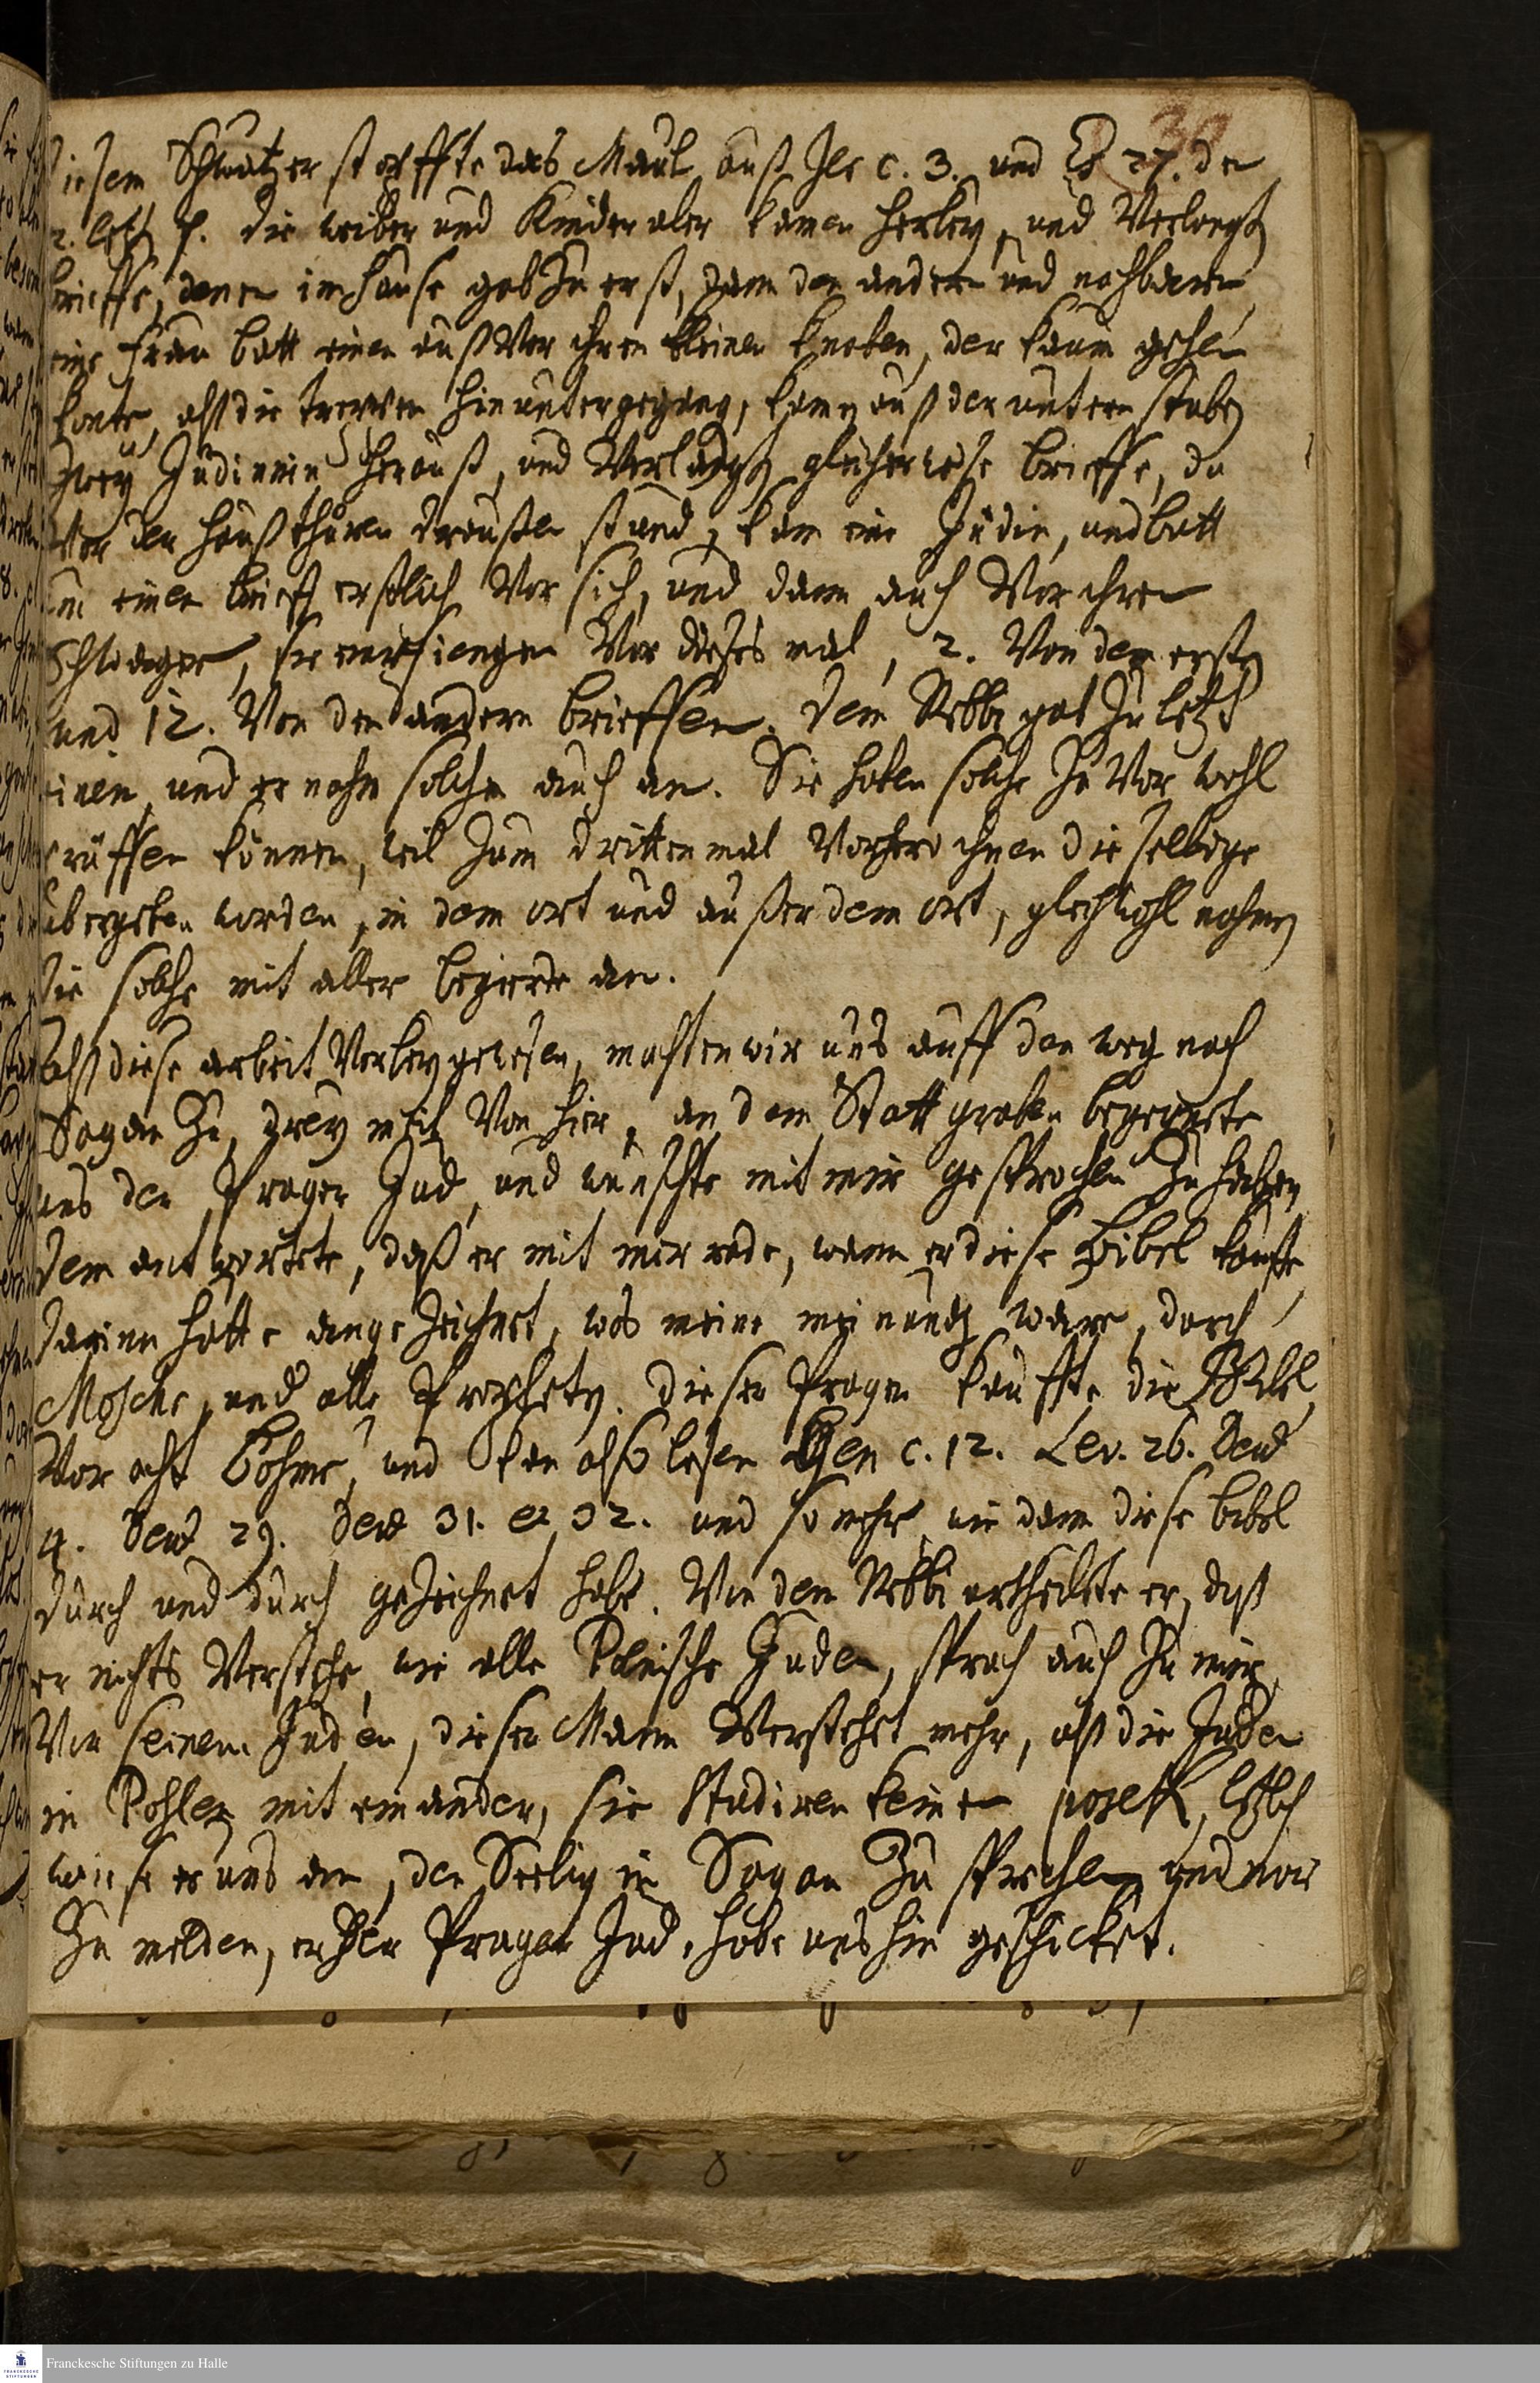 39
diesem Schwätzer stopffte das Maul auß Jes c. 3. und Es 27. der
2. letz f. die weiber und Kinder aber kamen herbey, und Verlangtẽ
brieffe, denen im hause gab zu erst, dann den andern und nachbarn
eine frau batt einen auß Vor ihren kleinen knaben, der kaum gehen
konte, alß die treppen hinuntergegang, kamẽ auß der untern stubẽ
zwey Jüdinnen herauß, und Verlangtẽ gleicherweise brieffe, da
Vor der haußthüren draußen stund, kam eine Jüdin, und batt
um einen brieff erstlich Vor sich, und dann auch Vor ihren
Schwager, sie empfiengen Vor dießes mal, 2. Von den erstẽ
und 12. Von den andern brieffen. dem Rebbi gab zuletzt
einen, und er nahm solchen auch an. Sie haben solche zu Vor wohl
prüffen können, weil zum dritten mal Vorhero ihnen dieselbige
übergeben worden, in dem ort und außer dem ort, gleichwohl nahmẽ
sie solche mit aller begierde an.
Alß diese arbeit Vorbey gewesen, machten wir uns auff den weg nach
Sagan zu, drey meil Von hier, an dem Statt graben begegnete
uns der Prager Jud, und wünschte mit mir gesprochen zu haben
dem antwortete, daß er mit mir rede, wann er diese Bibel kaufte
darinn hätte angezeichnet, was meine meinung ware, durch
Mosche, und alle Prophetẽ. dieser Prager kauffte die Bibel
Vor acht böhme, und kan also lesen Gen c. 12. Lev. 26. Deut
4. Deut 29. Deut 31. et 32. und so mehr, wie dann diese bibel
durch und durch gezeichnet habe. Von dem Rebbi urtheilete er, daß
er nichts Verstehe, wie alle Polnische Juden, sprach auch zu mir
Von seinem Juden, dieser Mann Verstehet mehr, alß die Juden
in Pohlen mit einander, sie studiren keinen posek, letzlich
wiese er uns an, den Seelig in Sagan zu sprechen und nur
zu melden, er der Prager Jud, habe uns hin geschicket.
Franckesche Stiftungen zu Halle